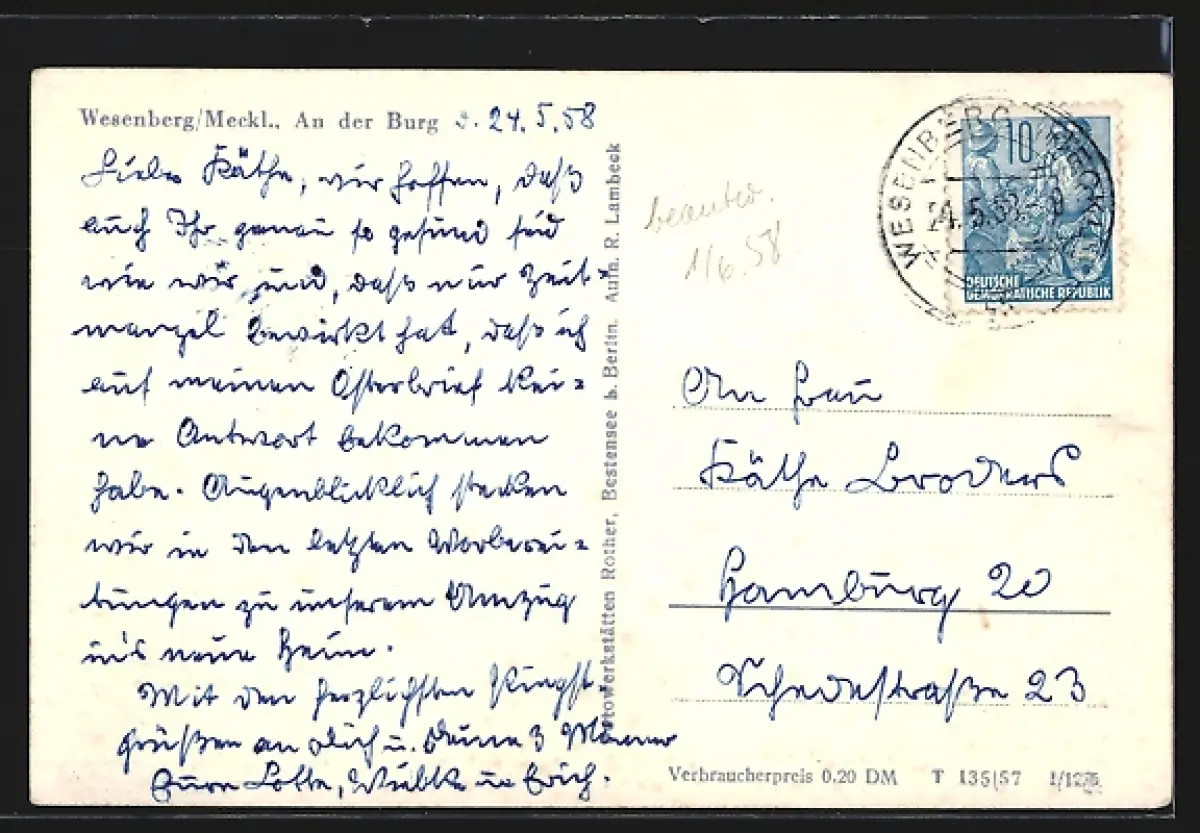 Wesenberg/Meckl., An der Burg d. 24. 5. 58
Liebe Käthe, wir hoffen, daß
auch Ihr genau so gesund seid
wie wir sind, daß nur Zeit-
mangel bewirkt hat, daß ich
auf meinen Osterbrief kei-
ne Antwort bekommen
habe. Augenblicklich stecken
wir in den letzten Vorberei-
tungen zu unserem Umzug
ins neue Heim.
Mit den herzlichsten Pfingst-
grüßen an dich u. Deine 3 Männer
Eure Lotte, u Erich.
Fotowerkstätten Rother, Bestensee b. Berlin. Aufn. R. Lambeck
beantw.
1/6. 58
WESENBERG (MECKL)
24.5.58
10
DEUTSCHE
DEMOKRATISCHE REPUBLIK
An Frau
Käthe Broders
Hamburg 20
Schedestraße 23
Verbraucherpreis 0.20 DM T 135/57